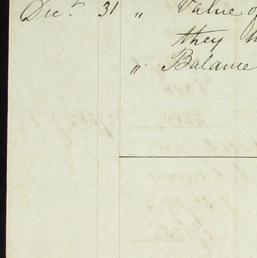 Dec.r 31 " Value of
they
" Balance